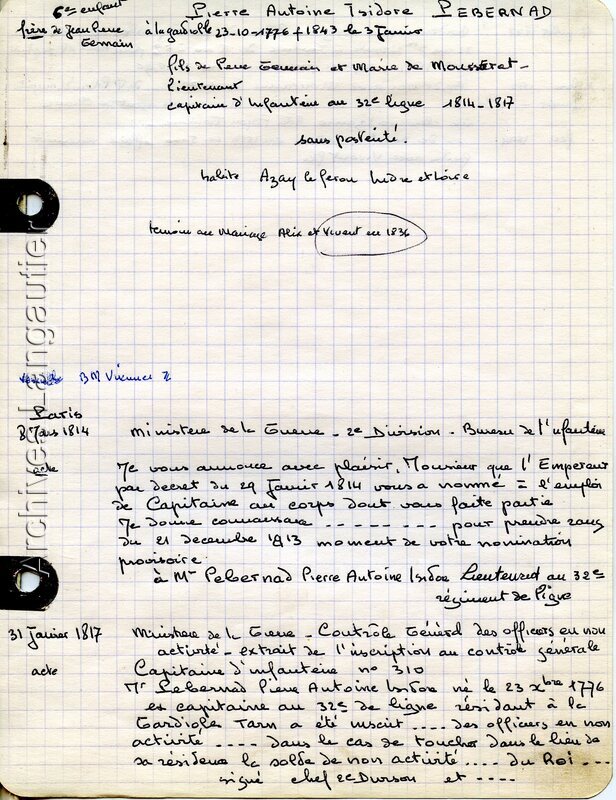 6e enfant
Pierre Antoine Isidore PEBERNAD
frère de Jean Pierre
Germain
à la gardiolle 23-10-1776 + 1843 le 3 Janvier
fils de Pierre Germain et Marie de Mousseret-
Lieutenant
capitaine d'Infanterie au 32e ligne 1814-1817
sans postérité.
habite Azay le feron Indre et Loire
temoin au Mariage Alix et Vivent en 1836
Archives Langautier
BM
Paris
8 Mars 1814
Ministere de la Guerre - 2e Division - Bureau de l'Infanterie
acte
Je vous annonce avec plaisir, Monsieur que l'Empereur
par decret du 29 Janvir 1814 vous a nommé = l'emploi
de Capitaine au corps dont vous faite partie
Je donne connaissance - - - - - - - - pour prendre rang
du 21 decembre 1813 moment de votre nomination
provisoire.
à Mr Pebernad Pierre Antoine Isidore Lieutenant au 32e
régiment de ligne
31 Janvier 1817
Ministere de la Guerre - Contrôle Général des officiers en non
activité - extrait de l'inscription au contrôle générale
acte
Capitaine d'infanterie no 310
Mr Pebernad Pierre Antoine Isidore né le 23 xbre 1776
ex capitaine au 32e de ligne résidant à la
Gardiole Tarn a été inscrit .... des officiers en non
activité .... dans le cas de toucher dans le lieu de
sa résidence la solde de non activité .... du Roi ...
signé chef 2e Division et .....